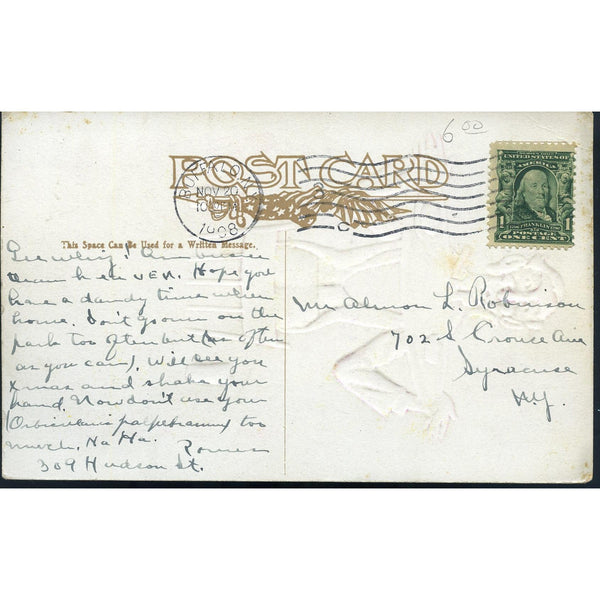 6 00
POST CARD
NOV 20
1908
C
UNITED STATES OF
AMERICA
1 FRANKLIN 1
POSTAGE
ONE CENT
This Space Can Be Used for a Written Message.
Gee whiz! Am busier
than h e l l ever. Hope you
have a dandy time when
home. Don't go on on the
park too often but (as often
as you can). Will see you
Xmas and shake your
hand. Now don't use your
(Orbicularis palpebrarum) too
much. Ha Ha.
309 Hudson St.
Mr Almon L. Robinson
702 S Crouse Ave
Syracuse
N.Y.